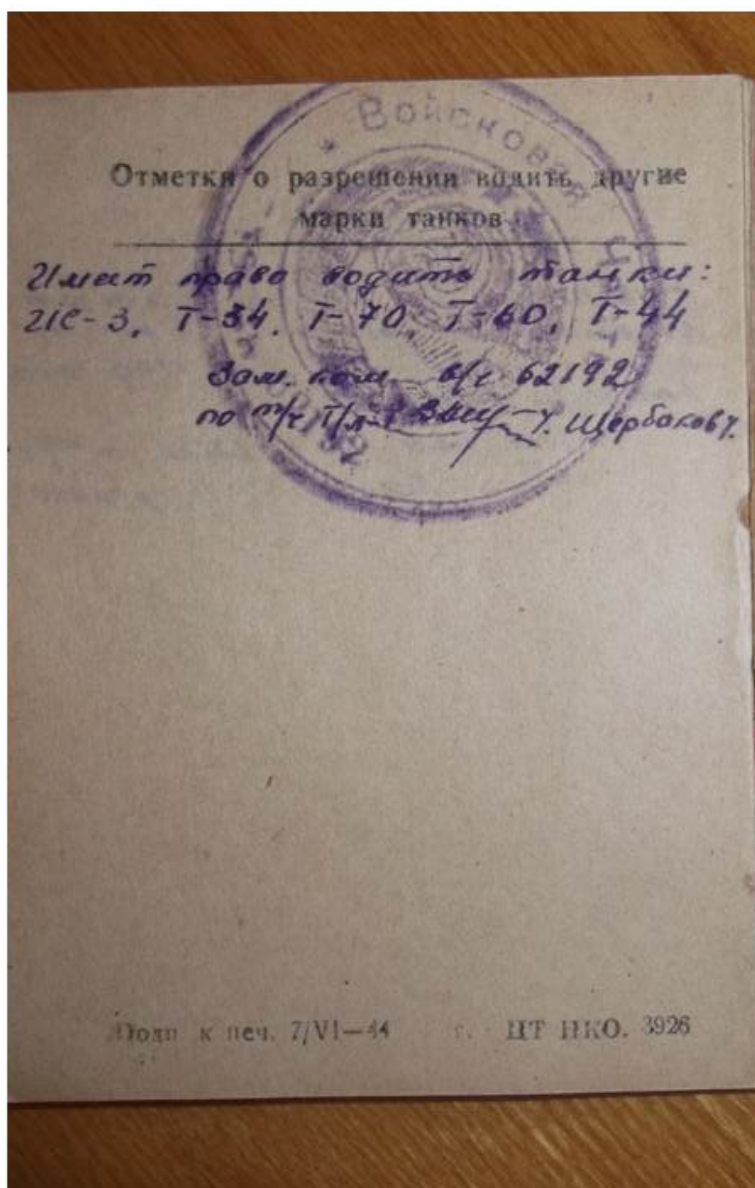 Войсковая
Отметки о разрешении водить другие
марки танков
Имеет право водить танки:
ИС-3, Т-34, Т-70, Т-60, Т-44
Зам. ком в/ч 62192
по т/ч Щербаков
Подп к печ. 7/VI—44 г. ЦТ НКО. 3926